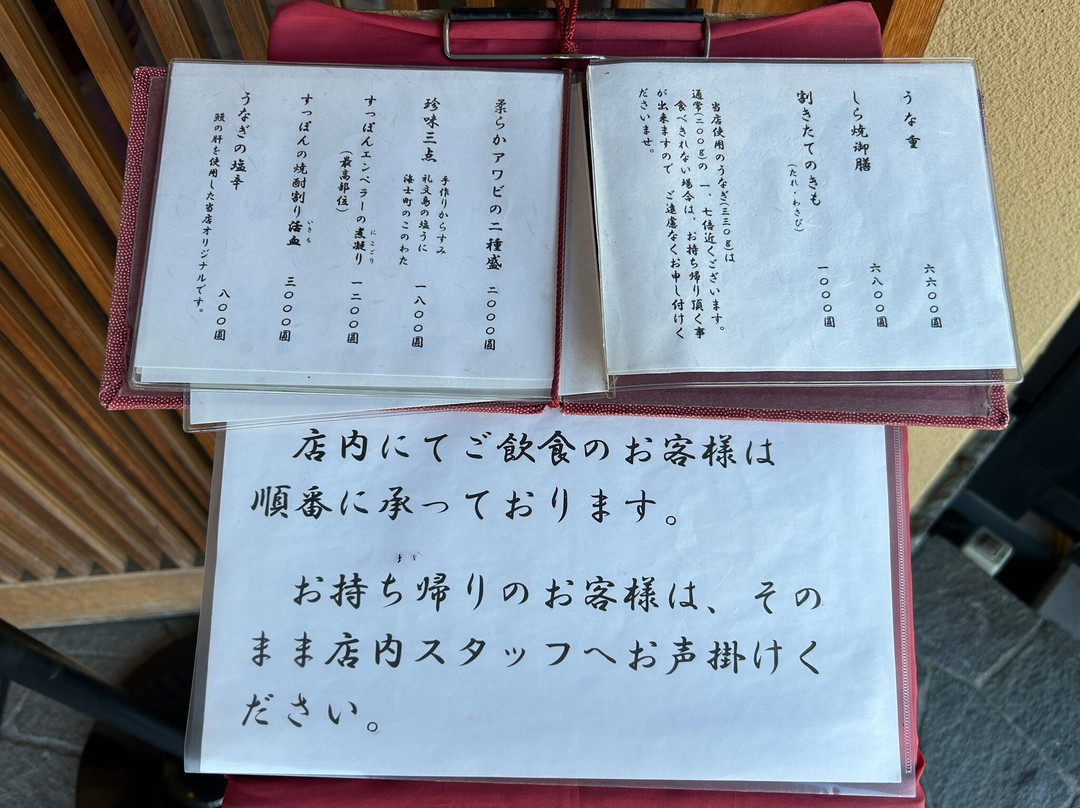 うな重 六六〇〇圓
しら焼御膳 六八〇〇圓
割きたてのきも 一〇〇〇圓
(たれ・わさび)
当店使用のうなぎ(三三〇g)は
通常(二〇〇g)の 一、七倍近くございます。
食べきれない場合は、お持ち帰り頂く事
が出来ますので ご遠慮なくお申し付けく
ださいませ。
柔らかアワビの二種盛 二〇〇〇圓
珍味三点 手作りからすみ
礼文島の塩うに
海士町のこのわた
一八〇〇圓
すっぽんエンペラーの煮凝り 一二〇〇圓
にこごり
(最高部位)
すっぽんの焼酎割り活血 三〇〇〇圓
いきち
うなぎの塩辛 八〇〇圓
鰻の肝を使用した当店オリジナルです。
店内にてご飲食のお客様は
順番に承っております。
お持ち帰りのお客様は、その
まま店内スタッフへお声掛けく
ださい。